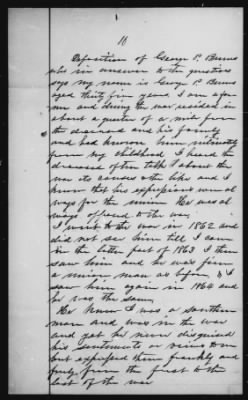 16
Deposition of George P. Burns
who in answer to the questions
says my name is George P. Burns
aged thirty five years I am a far
mer and during the war resided in
about a quarter of a mile from
the deceased and his family
and had known him intimately
from my childhood I heard the
deceased often talk about the
war its causes & the like and I
know that his expressions were al
ways for the union He was al
ways opposed to the war
I went to the war in 1862 and
did not see him till I came
in the latter part of 1863 I then
saw him and he was firm
a union man as before & I
saw him again in 1864 and
he was the same,
He knew I was a southern
man and was in the war
and yet he never disguised
his sentiments or views to me
but expressed them frankly and
freely from the first to the
last of the war